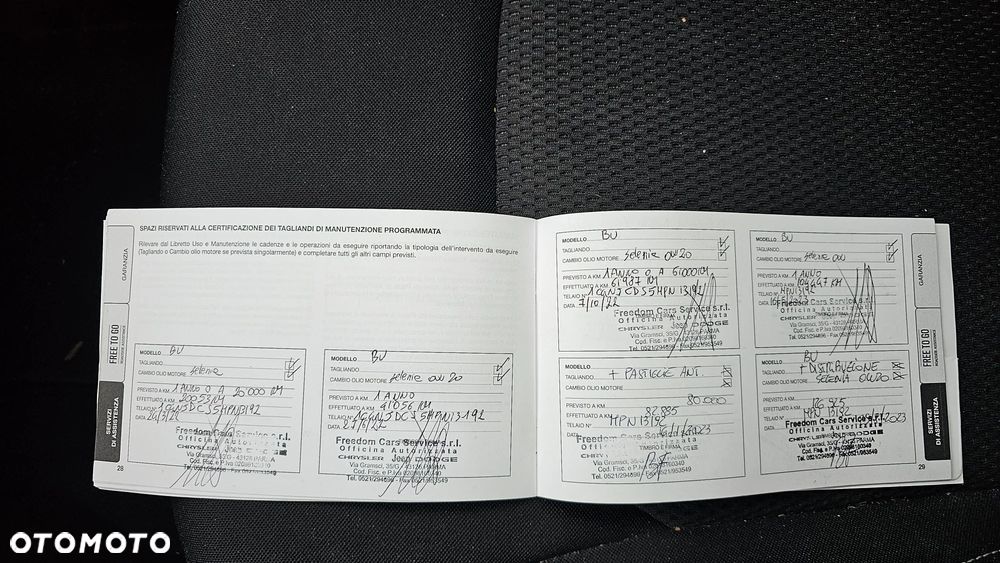 SPAZI RISERVATI ALLA CERTIFICAZIONE DEI TAGLIANDI DI MANUTENZIONE PROGRAMMATA
Rilevare dal Libretto Uso e Manutenzione le cadenze e le operazioni da eseguire riportando la tipologia dell'intervento da eseguire
(Tagliando o Cambio olio motore se prevista singolarmente) e completare tutti gli altri campi previsti.
GARANZIA
FREE TO GO
SERVIZI
DI ASSISTENZA
MODELLO BU
TAGLIANDO
CAMBIO OLIO MOTORE selenia
PREVISTO A KM 1 ANNO O A 20000 KM
EFFETTUATO A KM 20053 KM
TELAIO N°
DATA
Freedom Cars Service s.r.l.
Officina Autorizzata
Via Gramsci, 35/G - 43126 PARMA
Cod. Fisc. e P.Iva 02098160340
Tel. 0521/294896 - Fax 0521/953549
28
MODELLO BU
TAGLIANDO
CAMBIO OLIO MOTORE selenia 0W20
PREVISTO A KM 1 ANNO
EFFETTUATO A KM 41056 KM
TELAIO N°
DATA
Freedom Cars Service s.r.l.
Officina Autorizzata
CHRYSLER Jeep DODGE
Via Gramsci, 35/G - 43126 PARMA
Cod. Fisc. e P.Iva 02098160340
Tel. 0521/294896 - Fax 0521/953549
MODELLO BU
TAGLIANDO
CAMBIO OLIO MOTORE selenia 0W20
PREVISTO A KM 1 ANNO O A 61000 KM
EFFETTUATO A KM 61937 KM
TELAIO N°
DATA 7/10/22
Freedom Cars Service s.r.l.
Officina Autorizzata
CHRYSLER Jeep DODGE
Via Gramsci, 35/G - 43126 PARMA
Cod. Fisc. e P.Iva 02098160340
Tel. 0521/294896 - Fax 0521/953549
MODELLO BU
TAGLIANDO
CAMBIO OLIO MOTORE selenia
PREVISTO A KM 1 ANNO
EFFETTUATO A KM
TELAIO N° HPN13192
DATA
Freedom Cars Service s.r.l.
Officina Autorizzata
CHRYSLER Jeep DODGE
Via Gramsci, 35/G - 43126 PARMA
Cod. Fisc. e P.Iva 02098160340
Tel. 0521/294896 - Fax 0521/953549
MODELLO
TAGLIANDO + PASTIGLIE ANT.
CAMBIO OLIO MOTORE
PREVISTO A KM 80.000
EFFETTUATO A KM 82.885
TELAIO N° HPN 13192
DATA
Freedom Cars Service
Officina Autorizzata
TIMBRO E FIRMA
Via Gramsci, 35/G
Cod. Fisc. e P.Iva 02098160340
Tel. 0521/294896 - Fax 0521/953549
MODELLO BU
TAGLIANDO + DISTRIBUZIONE
CAMBIO OLIO MOTORE SELENIA
PREVISTO A KM
EFFETTUATO A KM 126.925
TELAIO N° HPN 13192
DATA
Freedom Cars Service s.r.l.
Officina Autorizzata
Via Gramsci, 35/G
Cod. Fisc. e P.Iva 02098160340
Tel. 0521/294896 - Fax 0521/953549
GARANZIA
FREE TO GO
SERVIZI
DI ASSISTENZA
29
OTOMOTO